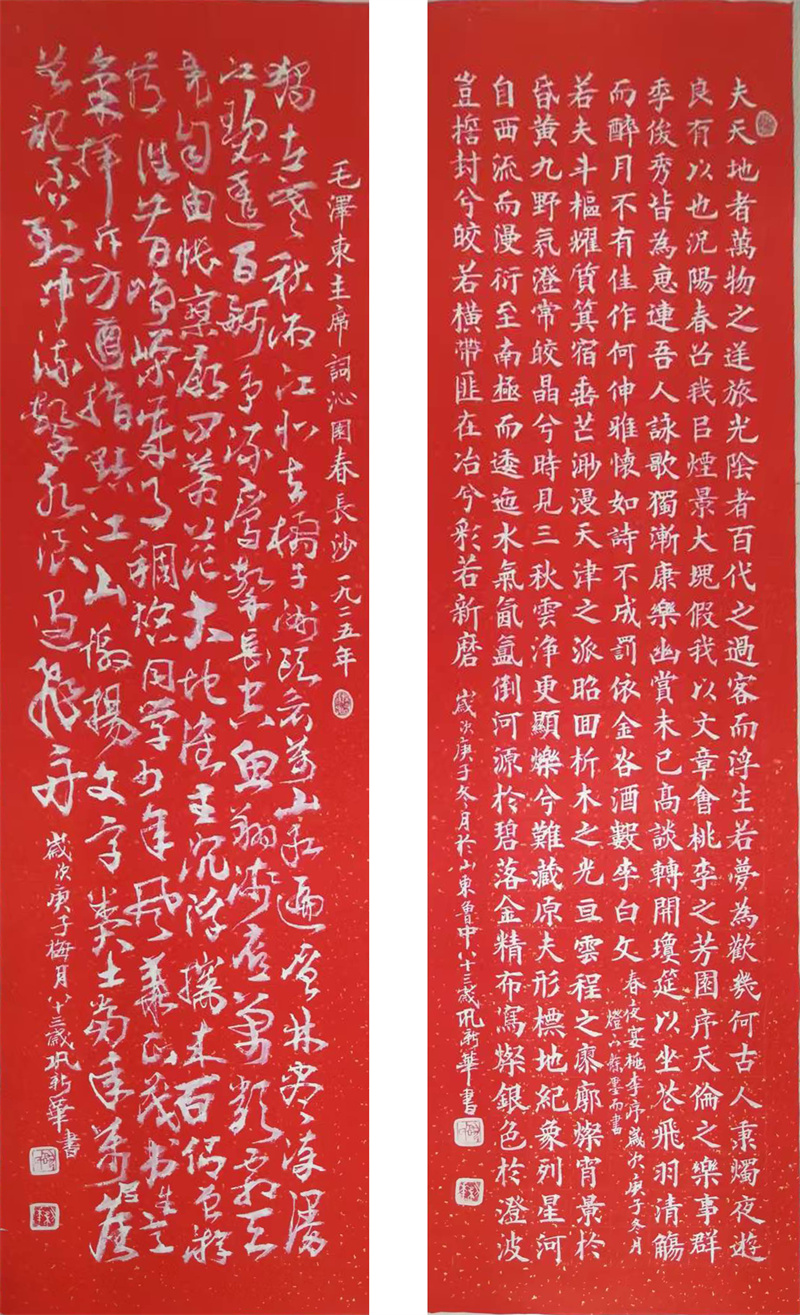 夫天地者萬物之逆旅光陰者百代之過客而浮生若夢為歡幾何古人秉燭夜遊
良有以也況陽春召我以煙景大塊假我以文章會桃李之芳園序天倫之樂事群
季俊秀皆為惠連吾人詠歌獨漸康樂幽賞未已高談轉開瓊筵以坐花飛羽清觴
而醉月不有佳作何伸雅懷如詩不成罰依金谷酒數李白文
春夜宴桃李序歲次庚子冬月
燈下餘墨而書
若夫斗樞耀質箕宿垂芒渺漫天津之派昭回析木之光亘雲程之廖廓燦宵景於
昏黃九野氛澄常皎晶兮時見三秋雲淨更顯爍兮難藏原夫形標地紀象列星河
自西流而漫衍至南極而逶迤水氣氤氳倒河源於碧落金精布寫燦銀色於澄波
豈捂封兮皎若橫帶匪在冶兮彩若新磨
歲次庚子冬月於山東魯中八十三歲巩新華書
毛澤東主席詞沁園春長沙一九二五年
獨立寒秋湘江北去橘子洲頭看萬山紅遍層林盡染漫
江碧透百舸爭流鷹擊長空魚翔淺底萬類霜天
競自由悵寥廓問蒼茫大地誰主沉浮攜來百侶曾游
憶往昔崢嶸歲月稠恰同学少年風華正茂书生意
氣揮斥方遒指點江山激揚文字糞土當年萬户侯
曾記否到中流擊水浪遏飛舟
歲次庚子梅月八十三歲巩新華書